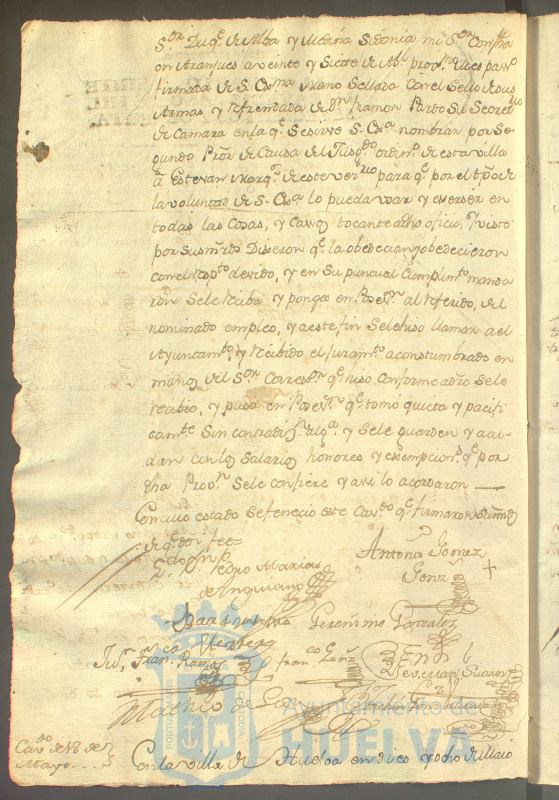 S.or Duq.e de Alba y Medina Sidonia mi S.or con fha
en Aranjues a veinte y Siete de Ab.l prox.mo
firmada de S. Ex.ma mano Sellada con el Sello de sus
Armas, y refrendada de D.n Ramon Pardo su Secret.rio
de Camara en la q.e Se sirve S. Ex.a nombrar por Se
gundo P.or de Causa del Jusg.do ordin.o de esta villa
a Estevan Marq.z de este vez.rio para q.e por el tpo de
la voluntad de S. Ex.a lo pueda usar y exerser en
todas las Cosas, y Casos tocante a dho oficio. Y visto
por sus m.rds Dixeron q.e la obedecian y obedecieron
con el resp.to devido, y en Su puntual Cumplim.to manda
ron Se le reciba y ponga en Poses.n al referido, del
nominado empleo, y a este fin Se le hiso llamar a el
Ayuntam.to, y recibido el Juram.to acostumbrado en
manos del S.or Correg.r q.e hiso conforme a dro Se le
recibio, y puso en Poses.n q.e tomó quieta y pacifi
cam.te Sin contradiz.n alg.a y Se le guarden y acu-
dan con los Salarios honores y exempcion.s q.e por
dha Prov.n Se le confiere y assi lo acordaron
Con cuio estado Se fenecio este Cav.do q.e firmaron Sus m.ds
de q.e doy fee
Pedro Marias
de Anquiano
Antonio Gomez
Gonz.z
Geronimo Gonzalez
Fran.co
Ju.n Fran.co Ramos
Fran.co
Estevan Suarez
Matheo de
Ayuntamiento de
HUELVA
Cav.do de 18 de
Mayo
En la villa de Huelva en dies y ocho de Maio